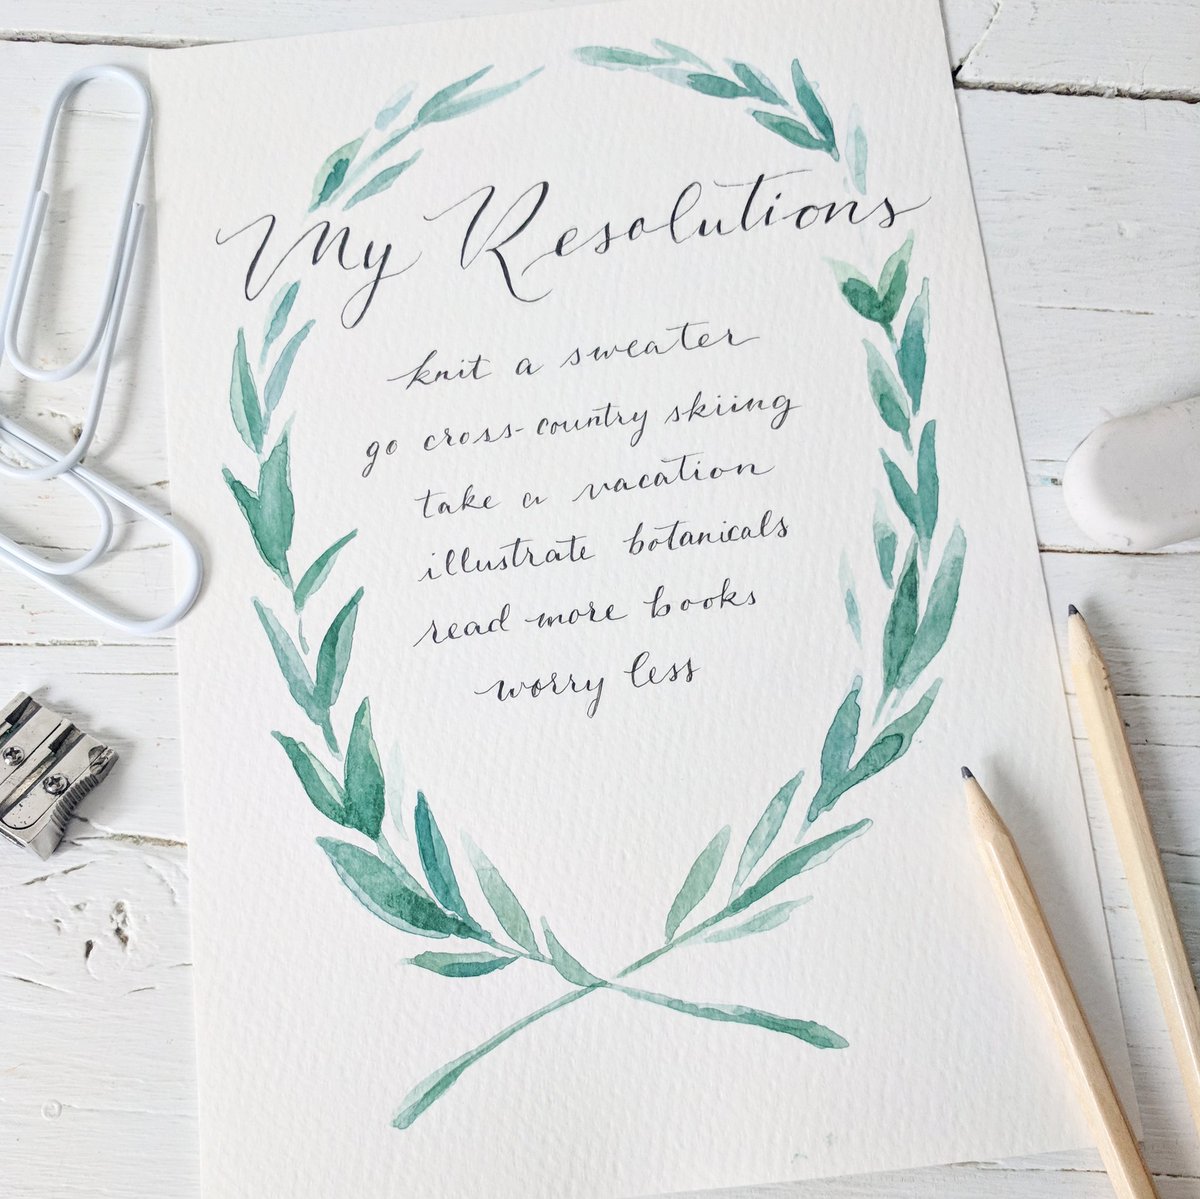 My Resolutions
knit a sweater
go cross-country skiing
take a vacation
illustrate botanicals
read more books
worry less